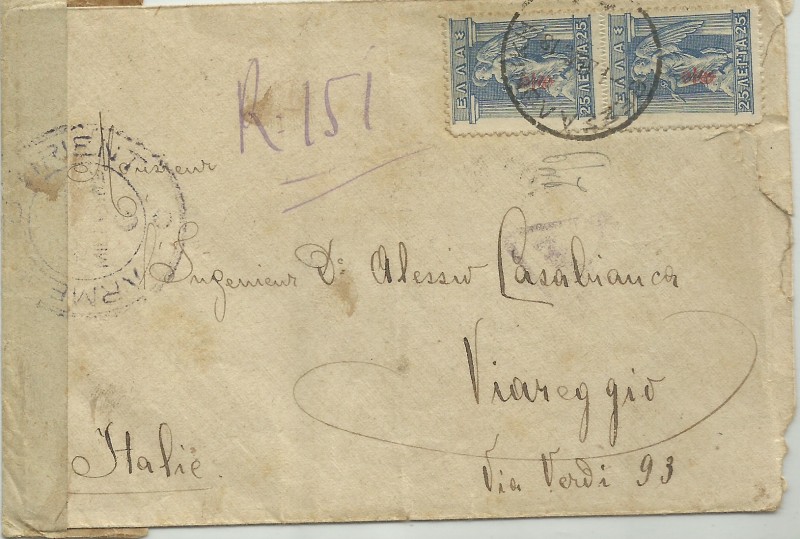 ΕΛΛΑΣ
25 ΛΕΠΤΑ 25
ΕΛΛΑΣ
25 ΛΕΠΤΑ 25
R 151
ORIENT
ARMÉE
Monsieur
l'Ingenieur Dr Alessio Casabianca
Viareggio
Via Verdi 93
Italie